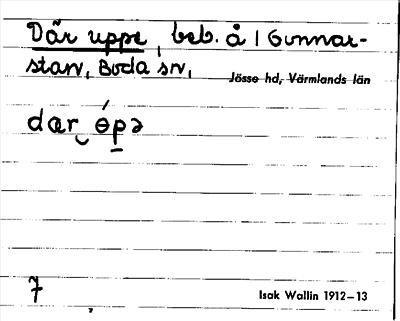 Där uppe, beb. å | Gunnar-
stan, Boda sn,
Jösse hd, Värmlands län
dær ɵ́pə
7
Isak Wallin 1912–13